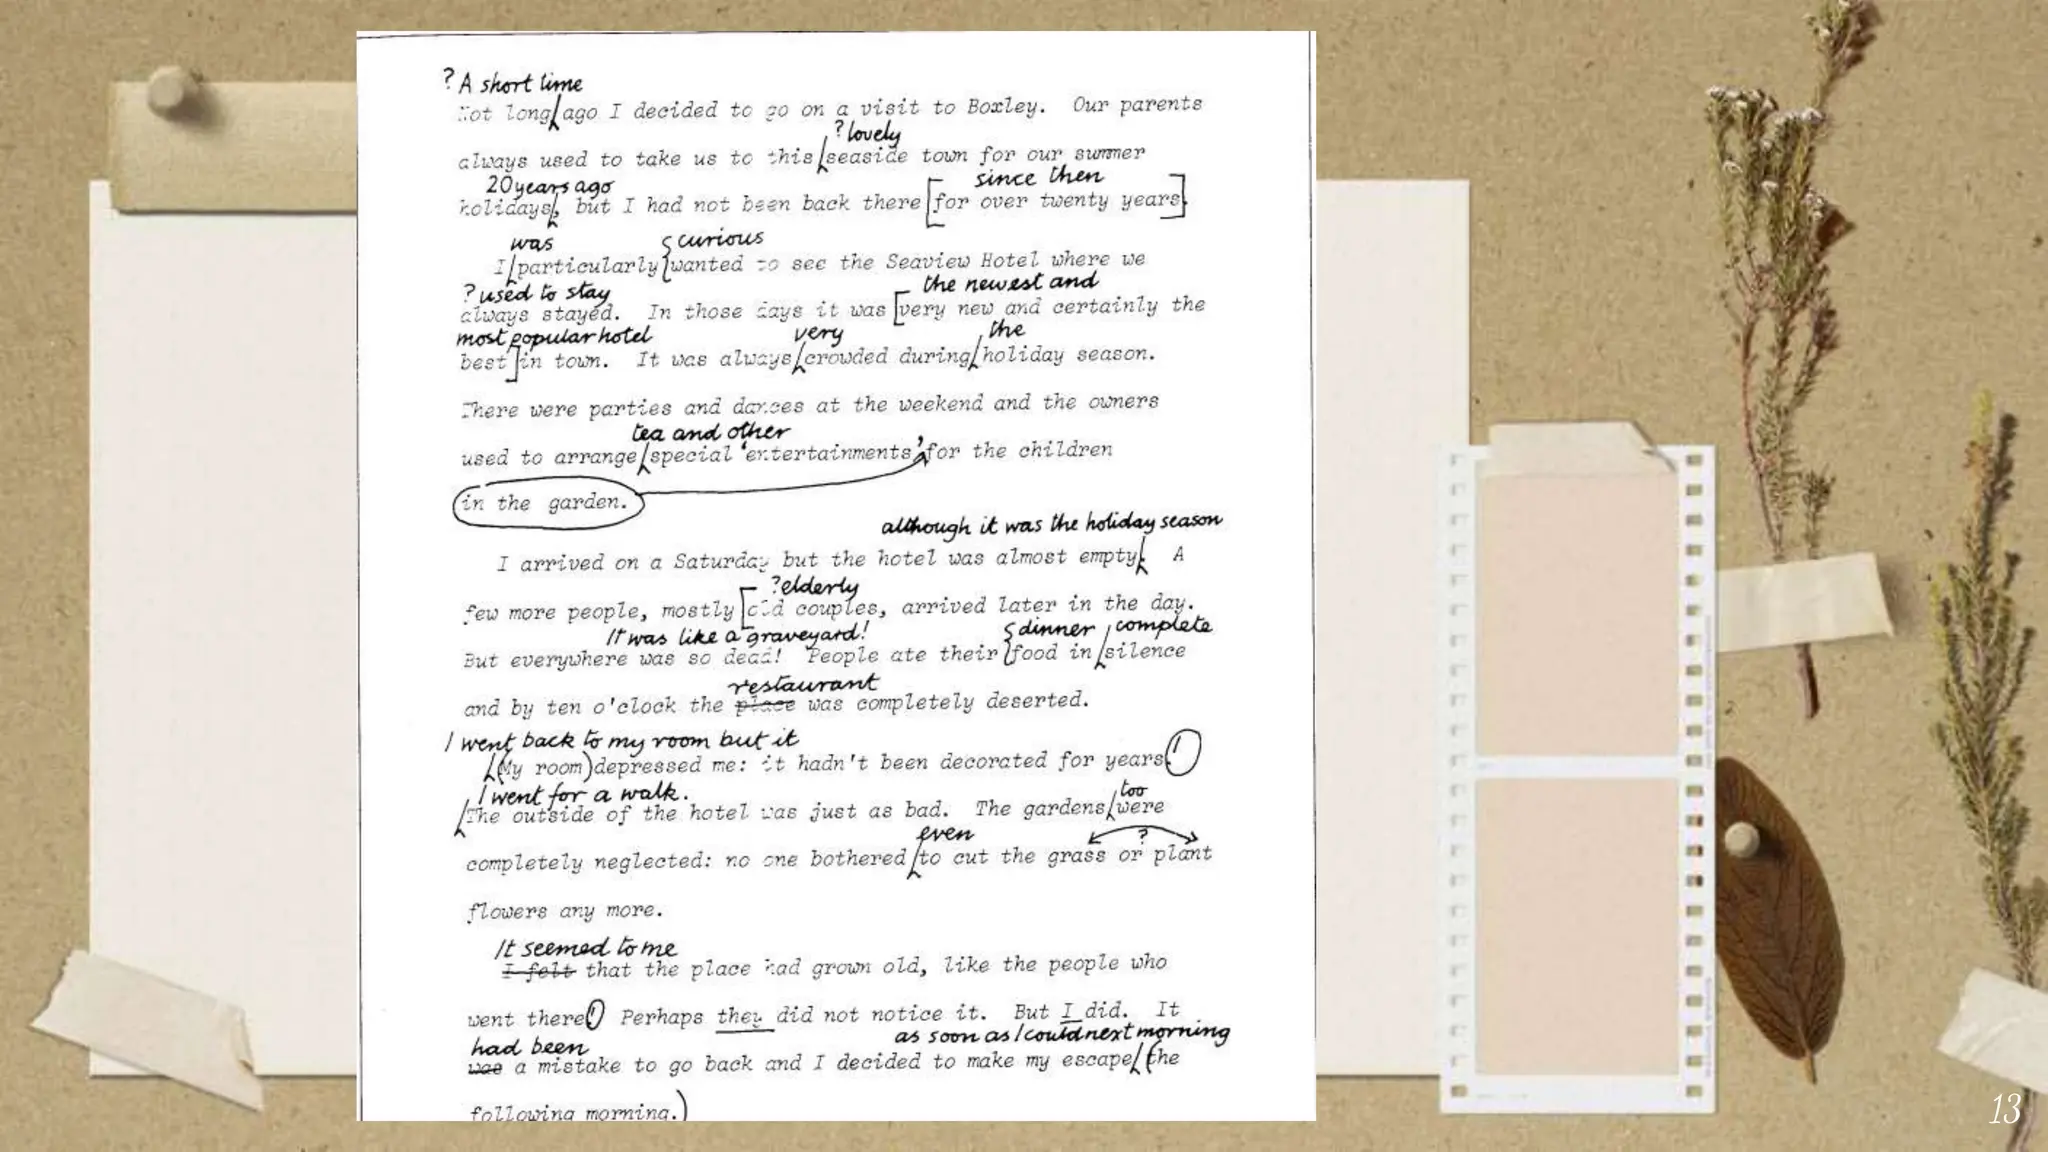 ? A short time
Not long ago I decided to go on a visit to Boxley. Our parents
? lovely
always used to take us to this seaside town for our summer
20 years ago since then
holidays, but I had not been back there [for over twenty years].
was curious
I particularly wanted to see the Seaview Hotel where we
? used to stay the newest and
always stayed. In those days it was [very new and certainly the
most popular hotel very the
best] in town. It was always crowded during holiday season.
There were parties and dances at the weekend and the owners
tea and other
used to arrange special 'entertainments' for the children
in the garden.
although it was the holiday season
I arrived on a Saturday but the hotel was almost empty. A
? elderly
few more people, mostly [old couples, arrived later in the day.
It was like a graveyard! dinner complete
But everywhere was so dead! People ate their food in silence
restaurant
and by ten o'clock the place was completely deserted.
I went back to my room but it
(My room) depressed me: it hadn't been decorated for years!
I went for a walk. too
The outside of the hotel was just as bad. The gardens were
even ?
completely neglected: no one bothered to cut the grass or plant
flowers any more.
It seemed to me
I felt that the place had grown old, like the people who
went there! Perhaps they did not notice it. But I did. It
had been as soon as I could next morning
was a mistake to go back and I decided to make my escape (the
following morning.)
13